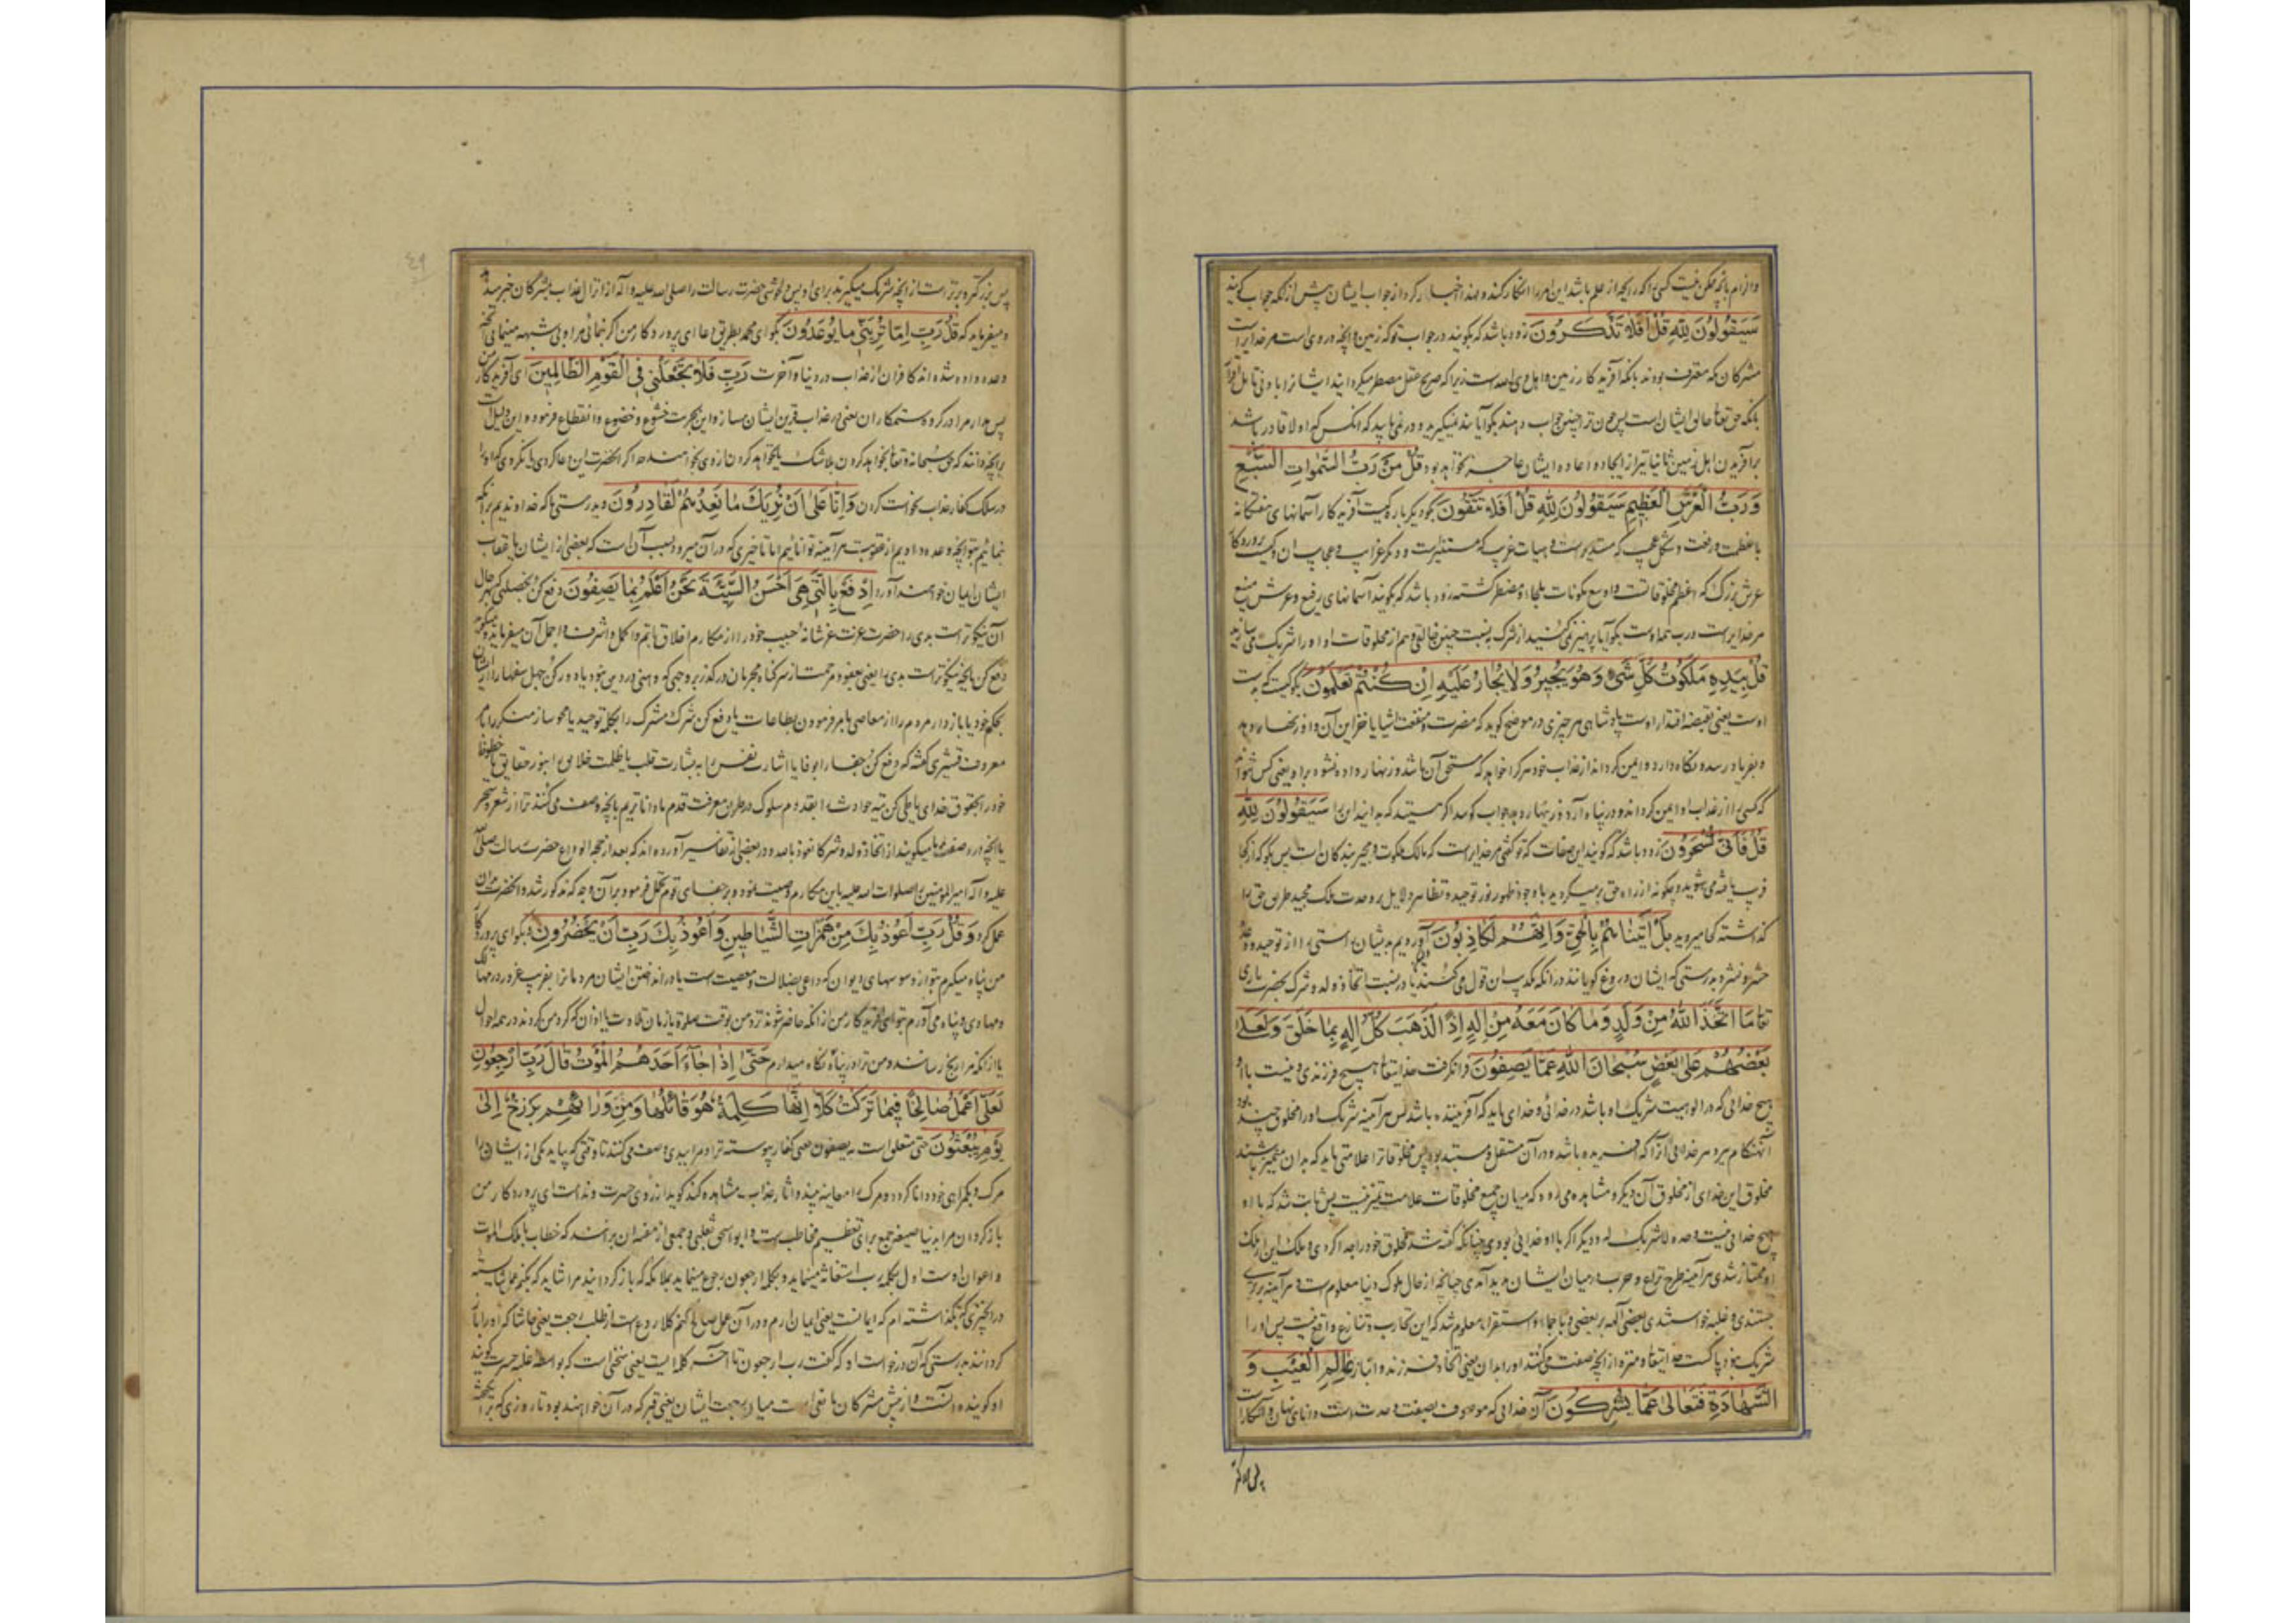 و الزام بآنچه ممکن نیست کسی را که در آنچه از علم باشد این امر را انکار کند و بعد اخبار کرد از جواب ایشان پیش از آنکه جواب گویند
سَيَقُولُونَ لِلَّهِ قُلْ أَفَلَا تَذَكَّرُونَ زود باشد که بگویند در جواب تو که زمین و آنچه در وی است مر خدایراست
مشرکان مکه معترف بودند بآنکه آفریدکار زمین و اهل وی الله است زیرا که صریح عقل مضطر میکرداند ایشانرا بادنی تامل
بآنکه حق تعالی خالق ایشان است پس چون ترا چنین جواب دهند بگو آیا پند نمیگیرید و در نمی یابید که آنکس که اولا قادر باشد
بر آفریدن اهل زمین ثانیا نیز از ایجاد و اعاده ایشان عاجز نخواهد بود قُلْ مَنْ رَبُّ السَّمٰوَاتِ السَّبْعِ
وَرَبُّ الْعَرْشِ الْعَظِيمِ سَيَقُولُونَ لِلَّهِ قُلْ أَفَلَا تَتَّقُونَ بگو دیگر باره کیست آفریدکار آسمانهای هفتگانه
با عظمت و رفعت و شکل عجیب که مستدیرست و هیات غریب که مستنیرست و دیگر غرایب و عجایب آن و کیست پروردکار
عرش بزرک که اعظم مخلوقاتست و اوسع مکونات زود باشد که بگویند آسمانهای رفیع و عرش منیع
مر خدایراست و رب همه اوست بگو آیا پرهیز نمی کنید از شرک به نسبت چنین خالقی و هم از مخلوقات او او را شریک می سازید
قُلْ مَنْ بِيَدِهِ مَلَكُوتُ كُلِّ شَيْءٍ وَهُوَ يُجِيرُ وَلَا يُجَارُ عَلَيْهِ إِنْ كُنْتُمْ تَعْلَمُونَ بگو کیست که بدست
اوست یعنی بقبضه اقتدار اوست پادشاهی هر چیزی در موضح گوید که مضرت و منفعت اشیا یا خزاین آن و او زنهار دهد
و بفریاد رسد و نگاه دارد و ایمن گرداند از عذاب خود هر کرا خواهد که مستحق آن باشد و زنهار داده نشود بر او یعنی کس نتواند
که کسی را از عذاب او ایمن گرداند و در پناه آرد و زینهار دهد جواب گویید اگر هستید که بدانید این را سَيَقُولُونَ لِلَّهِ
قُلْ فَأَنَّىٰ تُسْحَرُونَ زود باشد که گویند این صفات که تو گفتی مر خدایراست که مالک ملکوت و مجیر بندکان است پس بگو که از کجا
فریب یافته می شوید و چگونه از راه حق بر میگردید با وجود ظهور نور توحید و تظاهر دلایل بر وحدت ملک مجید طریق حق را
گذاشته کجا میروید بَلْ أَتَيْنَاهُمْ بِالْحَقِّ وَإِنَّهُمْ لَكَاذِبُونَ آوردیم بدیشان راستی را از توحید و وعده
حشر و نشر و بدرستی که ایشان دروغ گویانند در آنکه تکذیب این قول می کنند یا در نسبت اتخاذ ولد و شرک بحضرت باری
تعا مَا اتَّخَذَ اللَّهُ مِنْ وَلَدٍ وَمَا كَانَ مَعَهُ مِنْ إِلَٰهٍ إِذًا لَذَهَبَ كُلُّ إِلَٰهٍ بِمَا خَلَقَ وَلَعَلَا
بَعْضُهُمْ عَلَىٰ بَعْضٍ سُبْحَانَ اللَّهِ عَمَّا يَصِفُونَ فرا نکرفت خدایتعا هیچ فرزندی و نیست با او
هیچ خدائی که در الوهیت شریک او باشد در خدائی و خدای باید که آفریننده باشد پس هر آینه شریک او را مخلوقی چند بود
آنهنکام ببرد هر خدائی آنرا که آفریده باشد و در آن مستقل و مستبد بود پس مخلوقات را علامتی باید که بدان متمیز باشند
مخلوق این خدای از مخلوق آن دیگر و مشاهده می رود که میان جمیع مخلوقات علامت تمیز نیست پس ثابت شد که با او
هیچ خدائی نیست وحده لاشریک له و دیگر اگر با او خدائی بودی چنانکه گفته شد مخلوق خود را جدا کردی و ملک این از ملک
او ممتاز شدی هر آینه طرح نزاع و حرب در میان ایشان پدید آمدی چنانچه از حال ملوک دنیا معلوم است و هر آینه برتری
جستندی و غلبه خواستندی بعضی آلهه بر بعضی و باجماع و استقرا معلوم شد که این تحارب و تنازع واقع نیست پس او را
شریک نبود پاکست خدایتعا و منزه از آنچه صفت می کنند او را بدان یعنی اتخاذ فرزند و انباز عَالِمِ الْغَيْبِ وَ
الشَّهَادَةِ فَتَعَالَىٰ عَمَّا يُشْرِكُونَ آن خدائی که موصوف بصفت وحدتست دانای نهان و آشکارا است
پس بزرگتر و برترست از آنچه شریک میگیرند برای او پس حضرت رسالت را صلی الله علیه و آله از انزال عذاب بمشرکان خبر میدهد
و میفرماید که قُلْ رَبِّ إِمَّا تُرِيَنِّي مَا يُوعَدُونَ بگو ای محمد بطریق دعا ای پروردکار من اگر نمائی مرا و بی شبهه مینمائی آنچه
وعده داده شده اند کافران از عذاب در دنیا و آخرت رَبِّ فَلَا تَجْعَلْنِي فِي الْقَوْمِ الظَّالِمِينَ ای آفریدکار من
پس مدار مرا در گروه ستمکاران یعنی در عذاب قرین ایشان مساز و این بجهت خشوع و خضوع و انقطاع فرموده
بر آنچه دانند که حق سبحانه و تعا بخواهد کردن بلاشک
در سلک کفار عذاب نخواست کردن وَإِنَّا عَلَىٰ أَنْ نُرِيَكَ مَا نَعِدُهُمْ لَقَادِرُونَ و بدرستی ما که خداوندیم بر آنکه
نمائیم بتو آنچه وعده دادیم از عقوبت هر آینه توانائیم اما تاخیری که در آن میرود بسبب آن است که بعضی از ایشان یا اعقاب
ایشان ایمان خواهند آورد ادْفَعْ بِالَّتِي هِيَ أَحْسَنُ السَّيِّئَةَ نَحْنُ أَعْلَمُ بِمَا يَصِفُونَ دفع کن بخصلتی که بهر حال
آن نیکوتر است بدی را حضرت عزت عز شانه حبیب خود را از مکارم اخلاق باتم و اکمل و اشرف و اجمل آن میفرماید و میگوید
دفع کن بآنچه نیکوتر است بدی را یعنی بعفو و مرحمت از سر گناه مجرمان درگذر بر وجهی که وهنی در دین نبود یا دور کن جهل سفها را از ایشان
بحلم خود یا باز دار مردم را از معاصی بامر فرمودن بطاعات یا دفع کن شرک مشرک را بکلمه توحید یا محو ساز منکر را بامر
معروف قشیری گفته که دفع کن جفا را بوفا یا اشارت نفس را به بشارت قلب یا ظلمت خلایق را بنور حقایق یا حظوظ
خود را بحقوق خدای یا طی کن تیه حوادث را بقدوم سلوک در طریق معرفت قدم ما داناتریم بآنچه وصف می کنند ترا از شعر و سحر
یا آنچه در وصف ما میگویند از اتخاذ ولد و شرکا نعوذ بالله و در بعضی از تفاسیر آورده اند که بعد از حجة الوداع حضرت رسالت صلی الله
علیه و آله امیر المومنین را صلوات الله علیه باین مکارم وصیت نمود و بر جفای قوم تحمل فرمود بر آن وجه که مذکور شد و آنحضرت بران
عمل کرد وَقُلْ رَبِّ أَعُوذُ بِكَ مِنْ هَمَزَاتِ الشَّيَاطِينِ وَأَعُوذُ بِكَ رَبِّ أَنْ يَحْضُرُونِ و بگو ای پروردکار
من پناه میگیرم بتو از وسوسهای دیوان که داعی بضلالت و معصیت است یا در انداختن ایشان مردمانرا بفریب و غرور در مهالک
و مهاوی و پناه می آورم بتو ای آفریدکار من از آنکه حاضر شوند نزد من بوقت صلوة یا زمان تلاوت یا از آن که گرد من گردند در همه احوال
یا از آنکه مرا رنج رسانند و من ترا در پناه نگاه میدارم حَتَّىٰ إِذَا جَاءَ أَحَدَهُمُ الْمَوْتُ قَالَ رَبِّ ارْجِعُونِ
لَعَلِّي أَعْمَلُ صَالِحًا فِيمَا تَرَكْتُ كَلَّا إِنَّهَا كَلِمَةٌ هُوَ قَائِلُهَا وَمِنْ وَرَائِهِمْ بَرْزَخٌ إِلَىٰ
يَوْمِ يُبْعَثُونَ حتی متعلق است به یصفون یعنی کفار پیوسته ترا و مرا ببدی وصف می کنند تا وقتی که بیاید یکی از ایشان را
مرک و بگمراهی خود دانا گردد و مرک را معاینه بیند و آثار عذاب مشاهده کند گوید از روی حسرت و ندامت ای پروردکار من
باز گردان مرا بدنیا صیغه جمع برای تعظیم مخاطب است و ابو اسحق ثعلبی و جمعی از مفسران برانند که خطاب با ملک الموت
و اعوان اوست اول بکلمه رب استغاثه مینماید و بکلمه ارجعون رجوع مینماید بملائکه که باز گردانید مرا شاید که بکنم عمل شایسته
در آن چیزی که بگذاشته ام که ایمانست یعنی ایمان آرم و در آن عمل صالح کنم کلا ردع است از طلب رجعت یعنی حاشا که او را باز
گردانند بدرستی که آن درخواست او که گفت رب ارجعون تا آخر کلمه ایست یعنی سخنی است که بواسطه غلبه حسرت گویند
او گوینده آنست و از پیش مشرکان مانعی است میان رجعت ایشان یعنی قبر که در آن خواهند بود تا روزی که برانگیخته